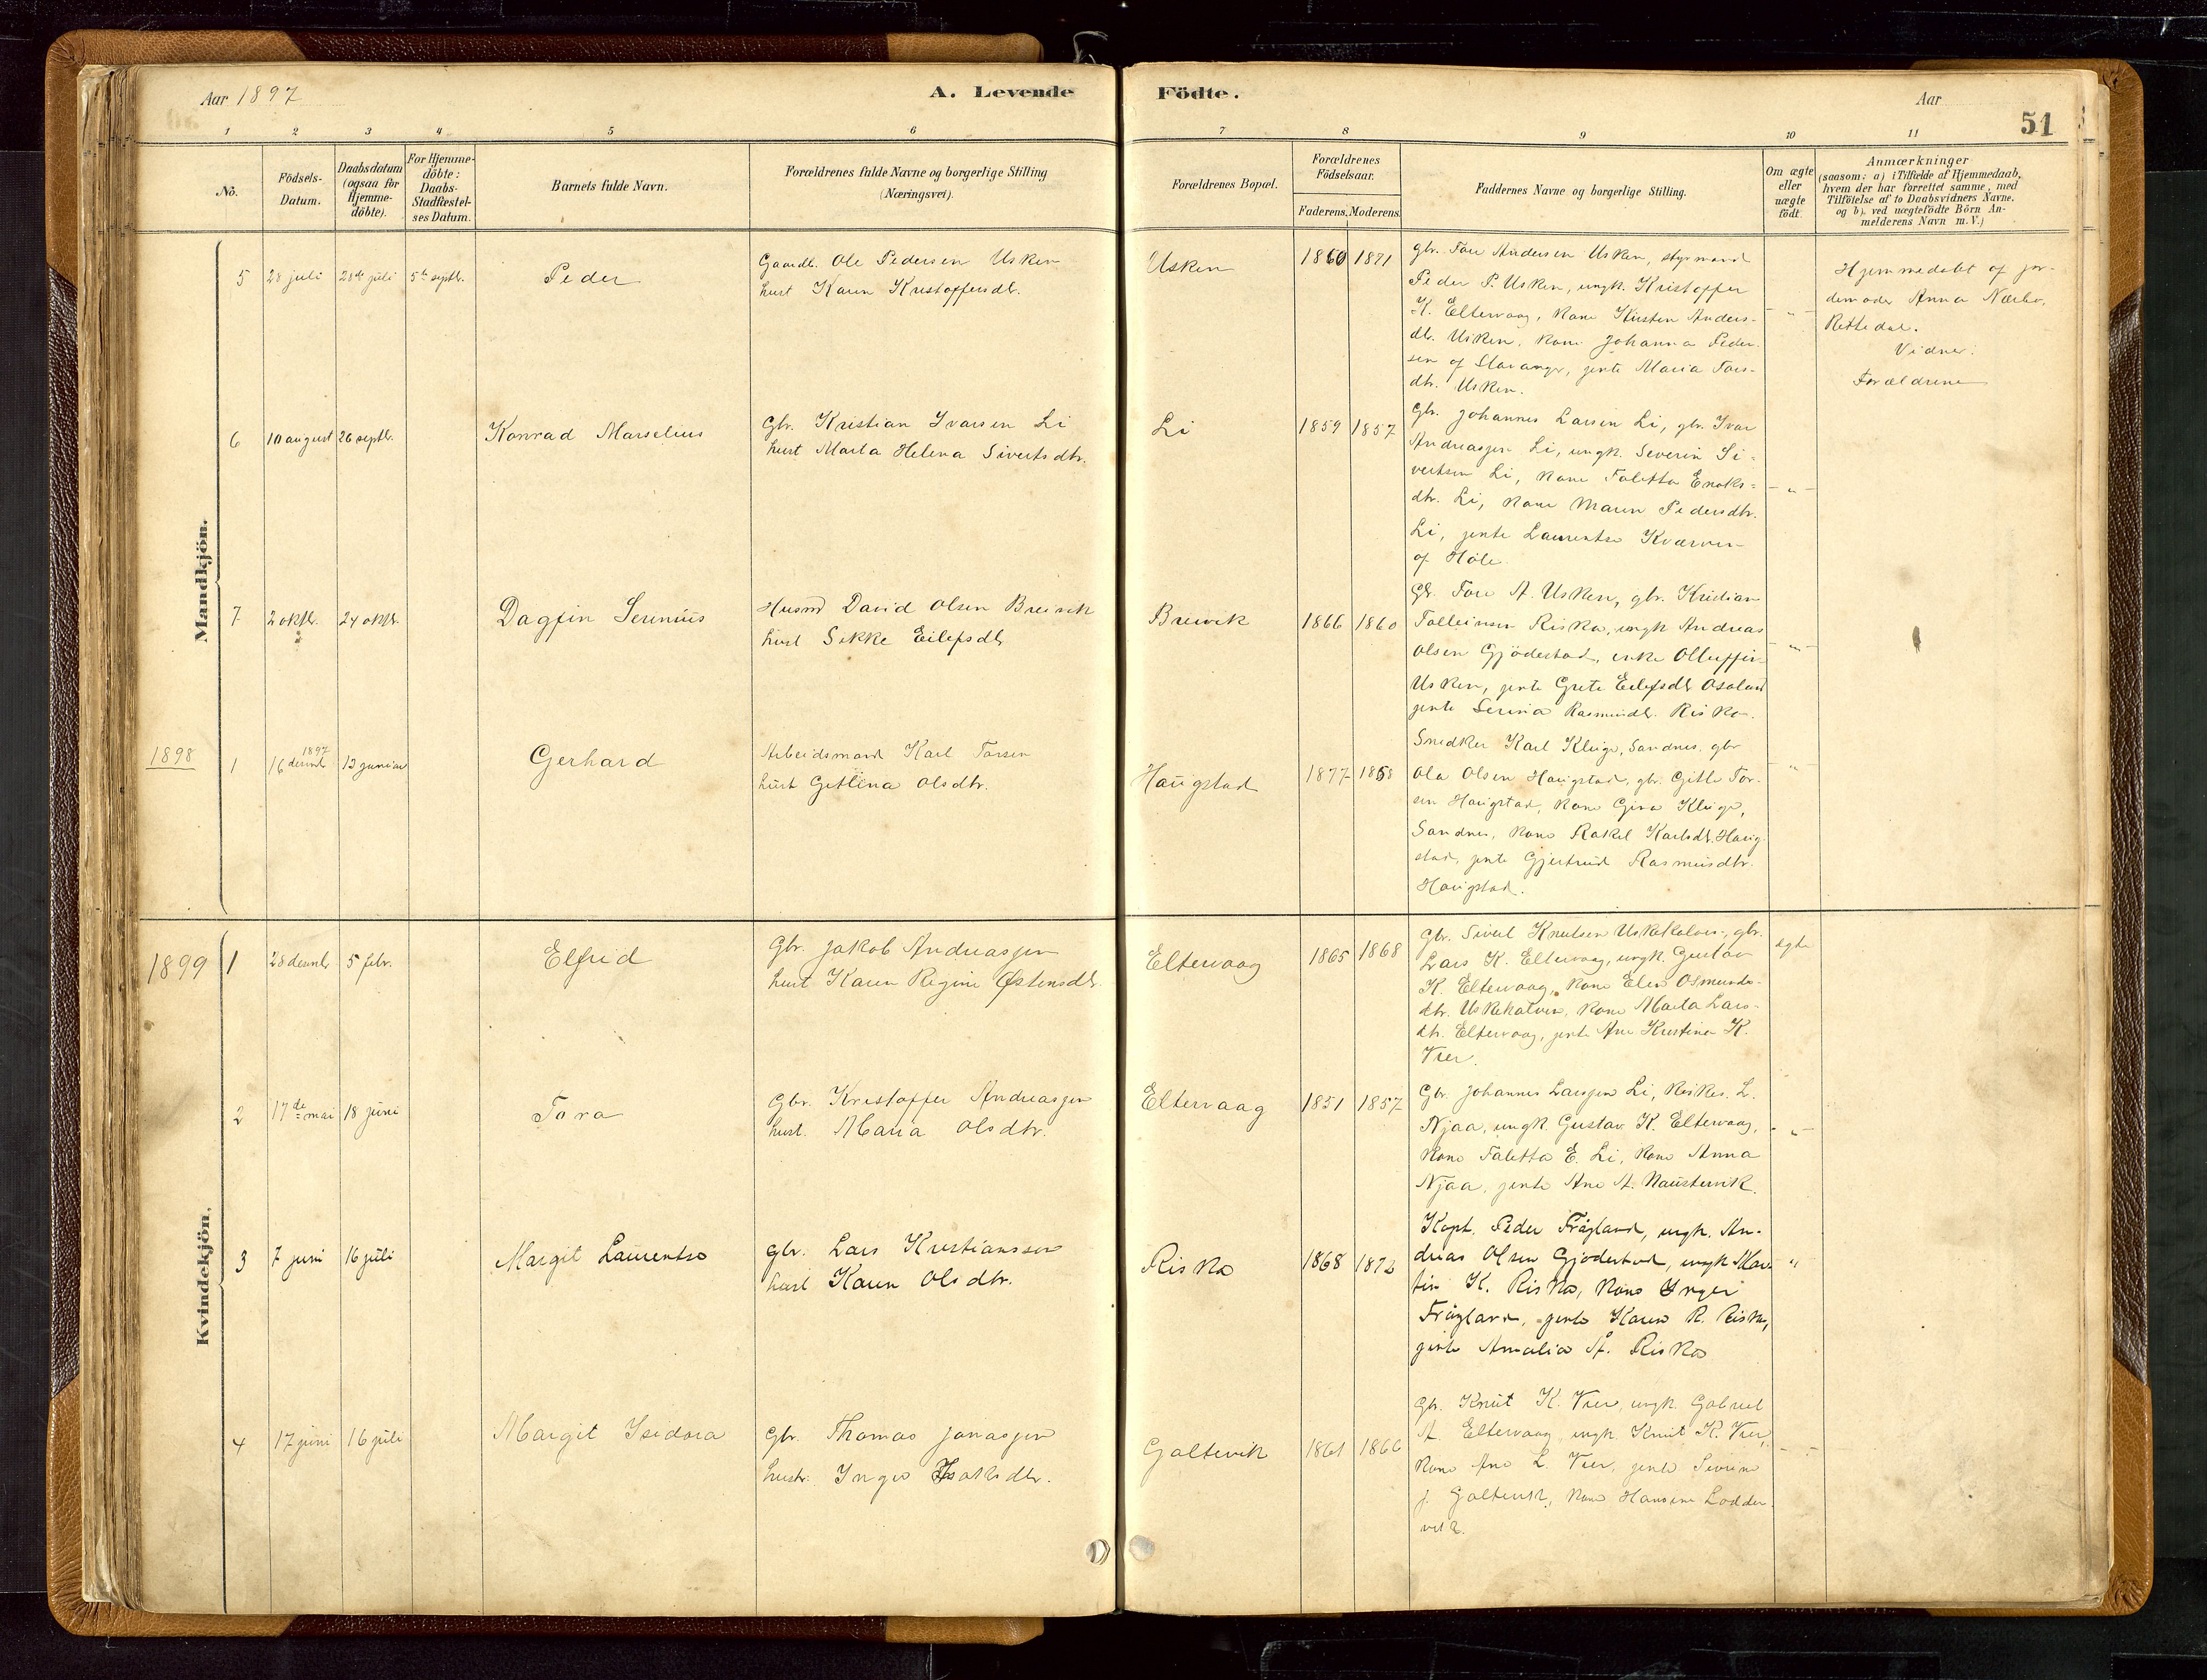 Aar 1897
A. Levende Födte.
Aar
51
1 2 3 4 5 6 7 8 9 10 11
No.
Födsels-Datum.
Daabsdatum (ogsaa for Hjemme-döbte).
For Hjemme-döbte: Daabs-Stadfæstel-ses Datum.
Barnets fulde Navn.
Forældrenes fulde Navne og borgerlige Stilling (Næringsvei).
Forældrenes Bopæl.
Forældrenes Födselsaar.
Faderens. Moderens.
Faddernes Navne og borgerlige Stilling.
Om ægte eller uægte födt.
Anmærkninger
(saasom: a) i Tilfælde af Hjemmedaab,
hvem der har forrettet samme, med
Tilföielse af to Daabsvidners Navne,
og b) ved uægtefödte Börn An-
melderens Navn m. V.)
Mandkjön.
5 28 juli 28de juli 5te septbr. Peder
Gaardb. Ole Pedersen Usken
hust Karen Kristoffersdtr.
Usken 1860 1871
gbr. Tore Andersen Usken, styrmand
Peder P. Usken, ungk. Kristoffer
K. Eltervaag, kone Kirsten Anders-
dtr. Usken, kone Johanna Peder-
sen af Stavanger, jente Maria Tors-
dtr. Usken.
"
Hjemmedøbt af jor-
demoder Anna Nærbø,
Rettedal.
Vidner:
Forældrene
6 10 august 26 septbr. Konrad Marselius
Gbr. Kristian Ivarsen Li
hust Marta Helena Sivertsdtr.
Li 1859 1857
Gbr. Johannes Larsen Li, gbr. Ivar
Andreassen Li, ungk. Severin Si-
vertsen Li, kone Taletta Enoks-
dtr. Li, kone Maren Pedersdtr.
Li, jente Laurentse Kværven
af Høle.
"
7 2 oktbr. 24 oktbr. Dagfin Serenius
Husmd David Olsen Breivik
hust Sikke Eilefsdtr
Breivik 1866 1860
Gbr. Tore A. Usken, gbr. Kristian
Tolleivsen Riska, ungk Andreas
Olsen Gjödestad, enke Olluffin
Usken, jente Grete Eilefsdtr Osaland
jente Serina Rasmusdtr. Riska.
"
1898
1 16 decembr 1897 13 januar Gerhard
Arbeidsmand Karl Torsen
hust Gitlena Olsdtr.
Haugstad 1877 1858
Snedker Karl Kluge, Sandnes, gbr
Ola Olsen Haugstad, gbr. Gitle Tor-
sen Haugstad, kone Gina Kluge,
Sandnes, kone Rakel Karlsdtr. Haug-
stad, jente Gjertrud Rasmusdtr.
Haugstad.
"
Kvindekjön.
1899
1 28 decmbr 5 febr. Elfrid
Gbr. Jakob Andreassen
hust Karen Regine Østensdtr.
Eltervaag 1865 1868
Gbr. Sivert Knutsen Uskekalven, gbr.
Lars K. Eltervaag, ungk. Gustav
K. Eltervaag, kone Elen Osmunds-
dtr. Uskekalven, kone Marta Lars-
dtr. Eltervaag, jente Ane Kristine K.
Vier.
egte
2 17de mai 18 juni Tora
Gbr. Kristoffer Andreassen
hust. Maria Olsdtr.
Eltervaag 1851 1857
Gbr. Johannes Larssen Li, L.
Njaa, ungk Gustav K. Eltervaag,
kone Taletta E. Li, kone Anna
Njaa, jente Ane A. Naustervik.
"
3 7 juni 16 juli Margit Laurentse
gbr. Lars Kristianssen
hust Karen Olsdtr.
Riska 1868 1872
Kapt. Peder Frøyland, ungk. An-
dreas Olsen Gjødestad, ungk Mar-
tin K. Riska, kone Inger
Frøyland, jente Karen R. Riska,
jente Amalia A. Riska
"
4 17 juni 16 juli Margit Isidora
Gbr. Thomas Jonassen
hustr. Inger Isaksdtr.
Galtevik 1861 1866
Gbr. Knut K. Vier, ungk. Gabriel
A. Eltervaag, ungk. Knut K. Vier,
kone Ane L. Vier, jente Severine
J. Galtevik, kone Hansine Lodder-
vik.
"